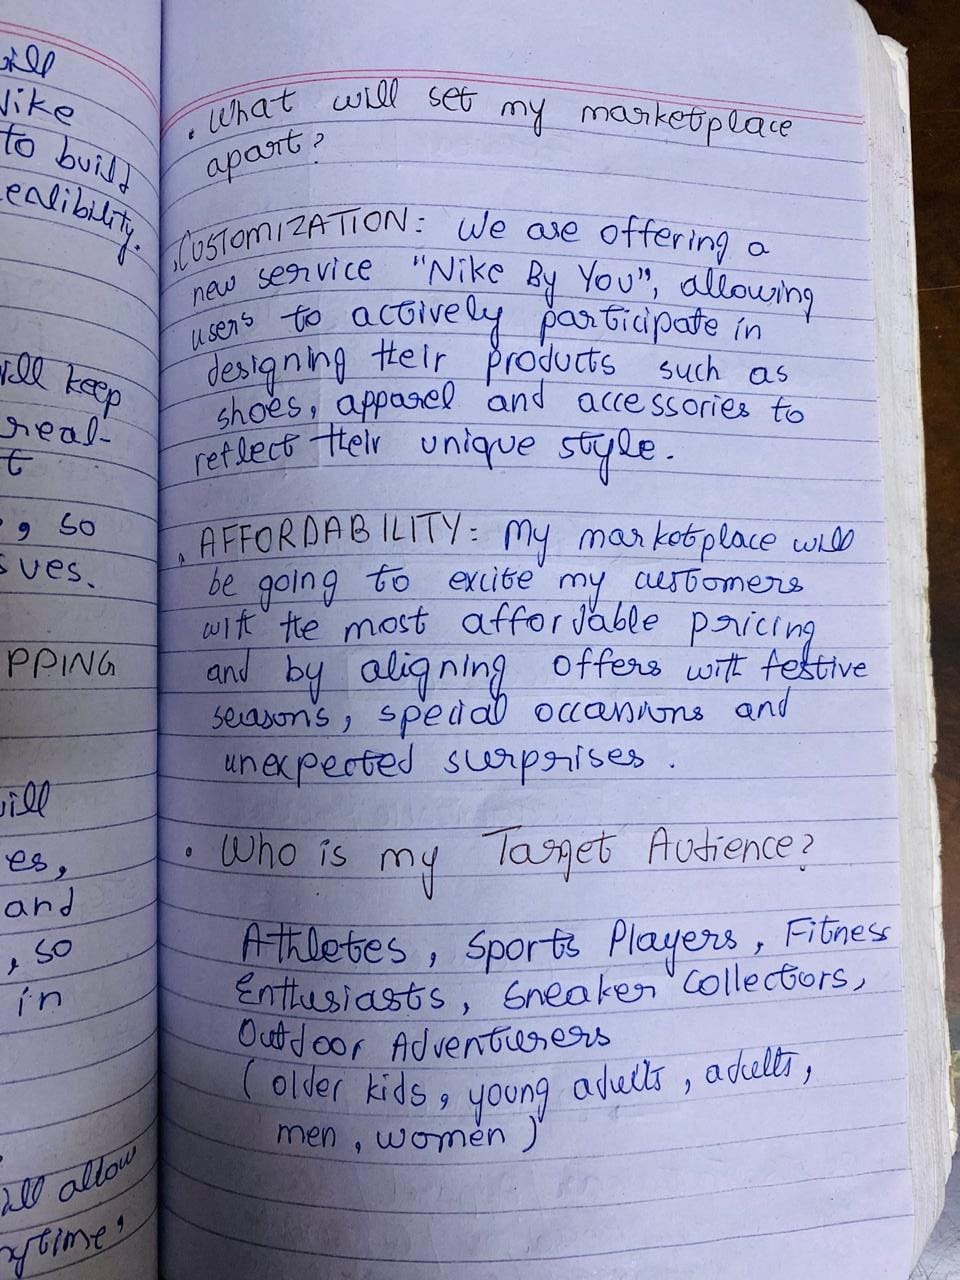 will
Nike
to build
ealibility.
will keep
real-
t
, so
ves.
PPING
will
es,
and
, so
in
will allow
nytime,
• What will set my marketplace
apart?
. CUSTOMIZATION: We are offering a
new service "Nike By You", allowing
users to actively participate in
designing their products such as
shoes, apparel and accessories to
reflect their unique style.
. AFFORDABILITY: My marketplace will
be going to excite my customers
with the most affordable pricing
and by aligning offers with festive
seasons, special occasions and
unexpected surprises.
• Who is my Target Audience?
Athletes, Sports Players, Fitness
Enthusiasts, Sneaker Collectors,
Outdoor Adventurers
(older kids, young adults, adults,
men, women)